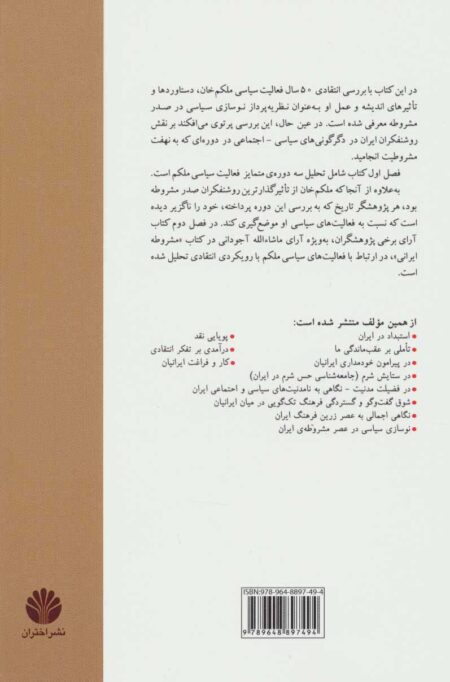 در این کتاب با بررسی انتقادی ۵۰ سال فعالیت سیاسی ملکم‌خان، دستاوردها و
تأثیرهای اندیشه و عمل او به‌عنوان نظریه‌پرداز نوسازی سیاسی در صدر
مشروطه معرفی شده است. در عین حال، این بررسی پرتوی می‌افکند بر نقش
روشنفکران ایران در دگرگونی‌های سیاسی - اجتماعی در دوره‌ای که به نهفت
مشروطیت انجامید.
فصل اول کتاب شامل تحلیل سه دوره‌ی متمایز فعالیت سیاسی ملکم است.
به‌علاوه از آنجا که ملکم‌خان از تأثیرگذارترین روشنفکران صدر مشروطه
بود، هر پژوهشگر تاریخ که به بررسی این دوره پرداخته، خود را ناگزیر دیده
است که نسبت به فعالیت‌های سیاسی او موضع‌گیری کند. در فصل دوم کتاب
آرای برخی پژوهشگران، به‌ویژه آرای ماشاءالله آجودانی در کتاب «مشروطه
ایرانی»، در ارتباط با فعالیت‌های سیاسی ملکم با رویکردی انتقادی تحلیل شده
است.
از همین مؤلف منتشر شده است:
• استبداد در ایران
• تأملی بر عقب‌ماندگی ما
• در پیرامون خودمداری ایرانیان
• در ستایش شرم (جامعه‌شناسی حس شرم در ایران)
• در فضیلت مدنیت - نگاهی به نامدنیت‌های سیاسی و اجتماعی ایران
• شوق گفت‌وگو و گستردگی فرهنگ تک‌گویی در میان ایرانیان
• نگاهی اجمالی به عصر زرین فرهنگ ایران
• نوسازی سیاسی در عصر مشروطه‌ی ایران
• پویایی نقد
• درآمدی بر تفکر انتقادی
• کار و فراغت ایرانیان
ISBN:978-964-8897-49-4
9789648897494
نشر اختران